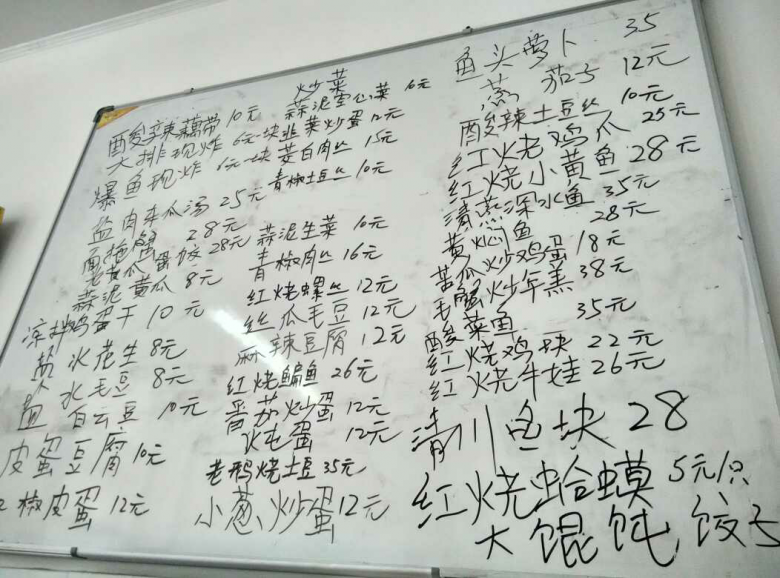 酸辣藕带 10元
大排现炸 6元一块
爆鱼现炸 6元一块
盐肉冬瓜汤 25元
面拖蟹 28元
28元
蒜泥黄瓜 8元
凉拌鸡蛋干 10元
盐水花生 8元
盐水毛豆 8元
百云豆 10元
皮蛋豆腐 10元
椒皮蛋 12元
炒菜
蒜泥空心菜 10元
韭菜炒蛋 12元
茭白肉丝 15元
青椒土豆丝 10元
蒜泥生菜 10元
青椒肉丝 16元
红烧螺丝 12元
丝瓜毛豆 12元
麻辣豆腐 12元
红烧鳊鱼 26元
番茄炒蛋 12元
火屯蛋 12元
老鸭烧土豆 35元
小葱炒蛋 12元
鱼头萝卜 35
蒸茄子 12元
酸辣土豆丝 10元
红烧老鸡瓜 25元
红烧小黄鱼 28元
清蒸深水鱼 35元
黄焖鱼 28元
苦瓜炒鸡蛋 18元
毛蟹炒年羔 38元
酸菜鱼 35元
红烧鸡块 22元
红烧牛娃 26元
清川鱼块 28
红烧蛤蟆 5元/只
大馄饨 饺子